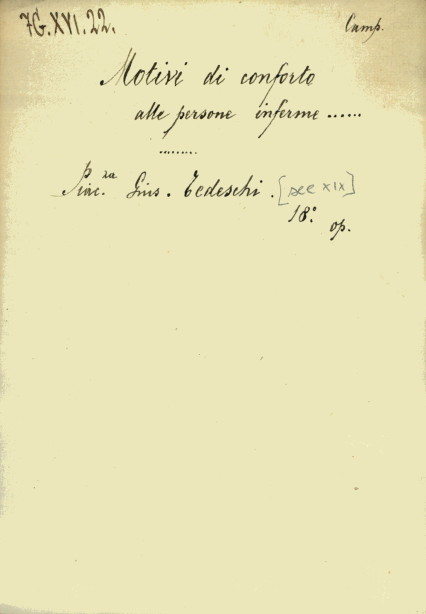 7G.XVI.22.
Camp.
Motivi di conforto
alle persone inferme ......
.........
Piac.za Gius. Tedeschi. [sec XIX]
18.° op.